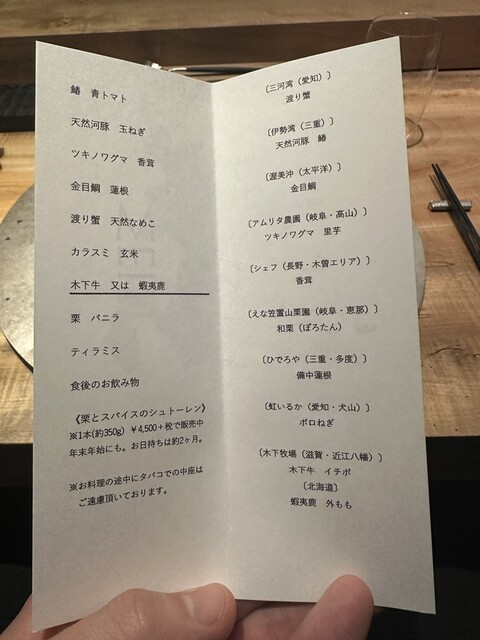 鰆　青トマト
天然河豚　玉ねぎ
ツキノワグマ　香茸
金目鯛　蓮根
渡り蟹　天然なめこ
カラスミ　玄米
木下牛　又は　蝦夷鹿
栗　バニラ
ティラミス
食後のお飲み物
《栗とスパイスのシュトーレン》
※1本(約350g) ￥4,500+税で販売中
年末年始にも。お日持ちは約2ヶ月。
※お料理の途中にタバコでの中座は
ご遠慮頂いております。
〔三河湾（愛知）〕
渡り蟹
〔伊勢湾（三重）〕
天然河豚　鰆
〔渥美沖（太平洋）〕
金目鯛
〔アムリタ農園（岐阜・高山）〕
ツキノワグマ　里芋
〔シェフ（長野・木曽エリア）〕
香茸
〔えな笠置山栗園（岐阜・恵那）〕
和栗（ぽろたん）
〔ひでろや（三重・多度）〕
備中蓮根
〔虹いるか（愛知・犬山）〕
ボロねぎ
〔木下牧場（滋賀・近江八幡）〕
木下牛　イチボ
〔北海道〕
蝦夷鹿　外もも